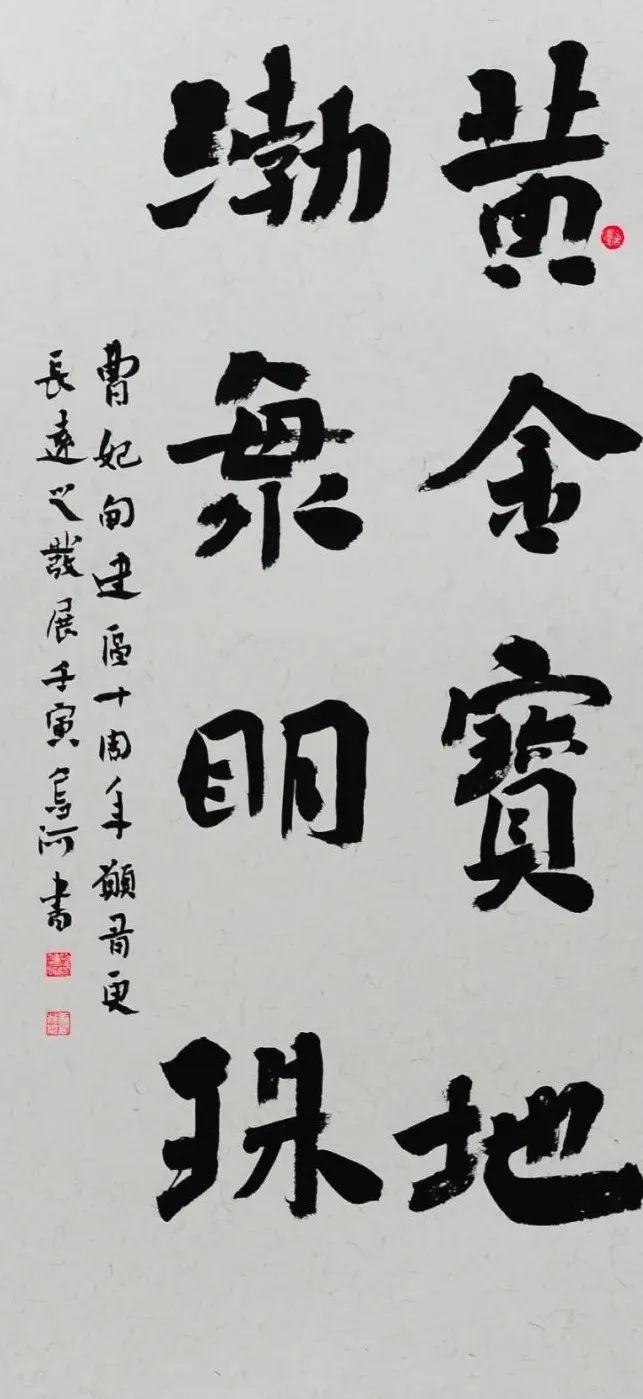 黄金寶地
渤海明珠
曹妃甸建區十周年願有更
長遠之發展壬寅烏河書